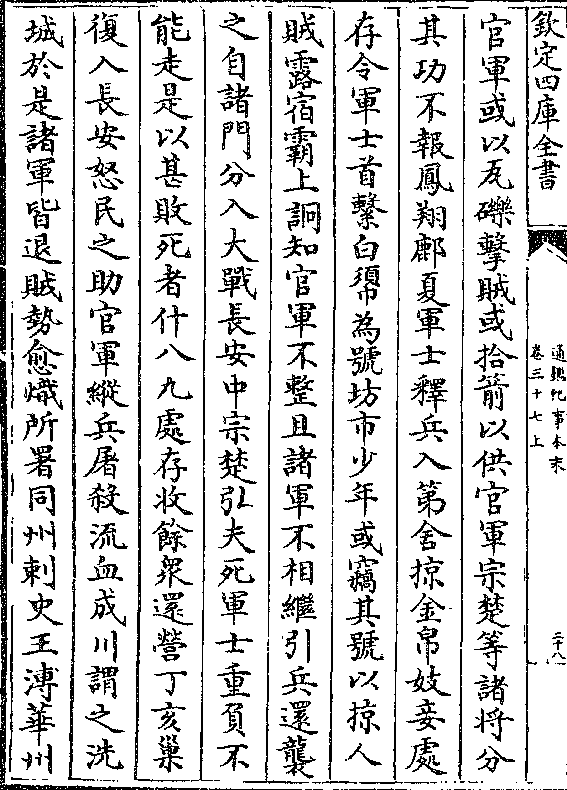 欽定四庫全書
通鑑紀事本末
卷三十七上
二十八
官軍或以瓦礫擊賊或拾箭以供官軍宗楚等諸將分
其功不報鳳翔鄜夏軍士釋兵入第舍掠金帛妓妾處
存令軍士首繫白𢄼為號坊市少年或竊其號以掠人
賊露宿霸上詗知官軍不整且諸軍不相繼引兵還襲
之自諸門分入大戰長安中宗楚弘夫死軍士重負不
能走是以甚敗死者什八九處存收餘衆還營丁亥巢
復入長安怒民之助官軍縱兵屠殺流血成川謂之洗
城於是諸軍皆退賊勢愈熾所署同州刺史王溥華州